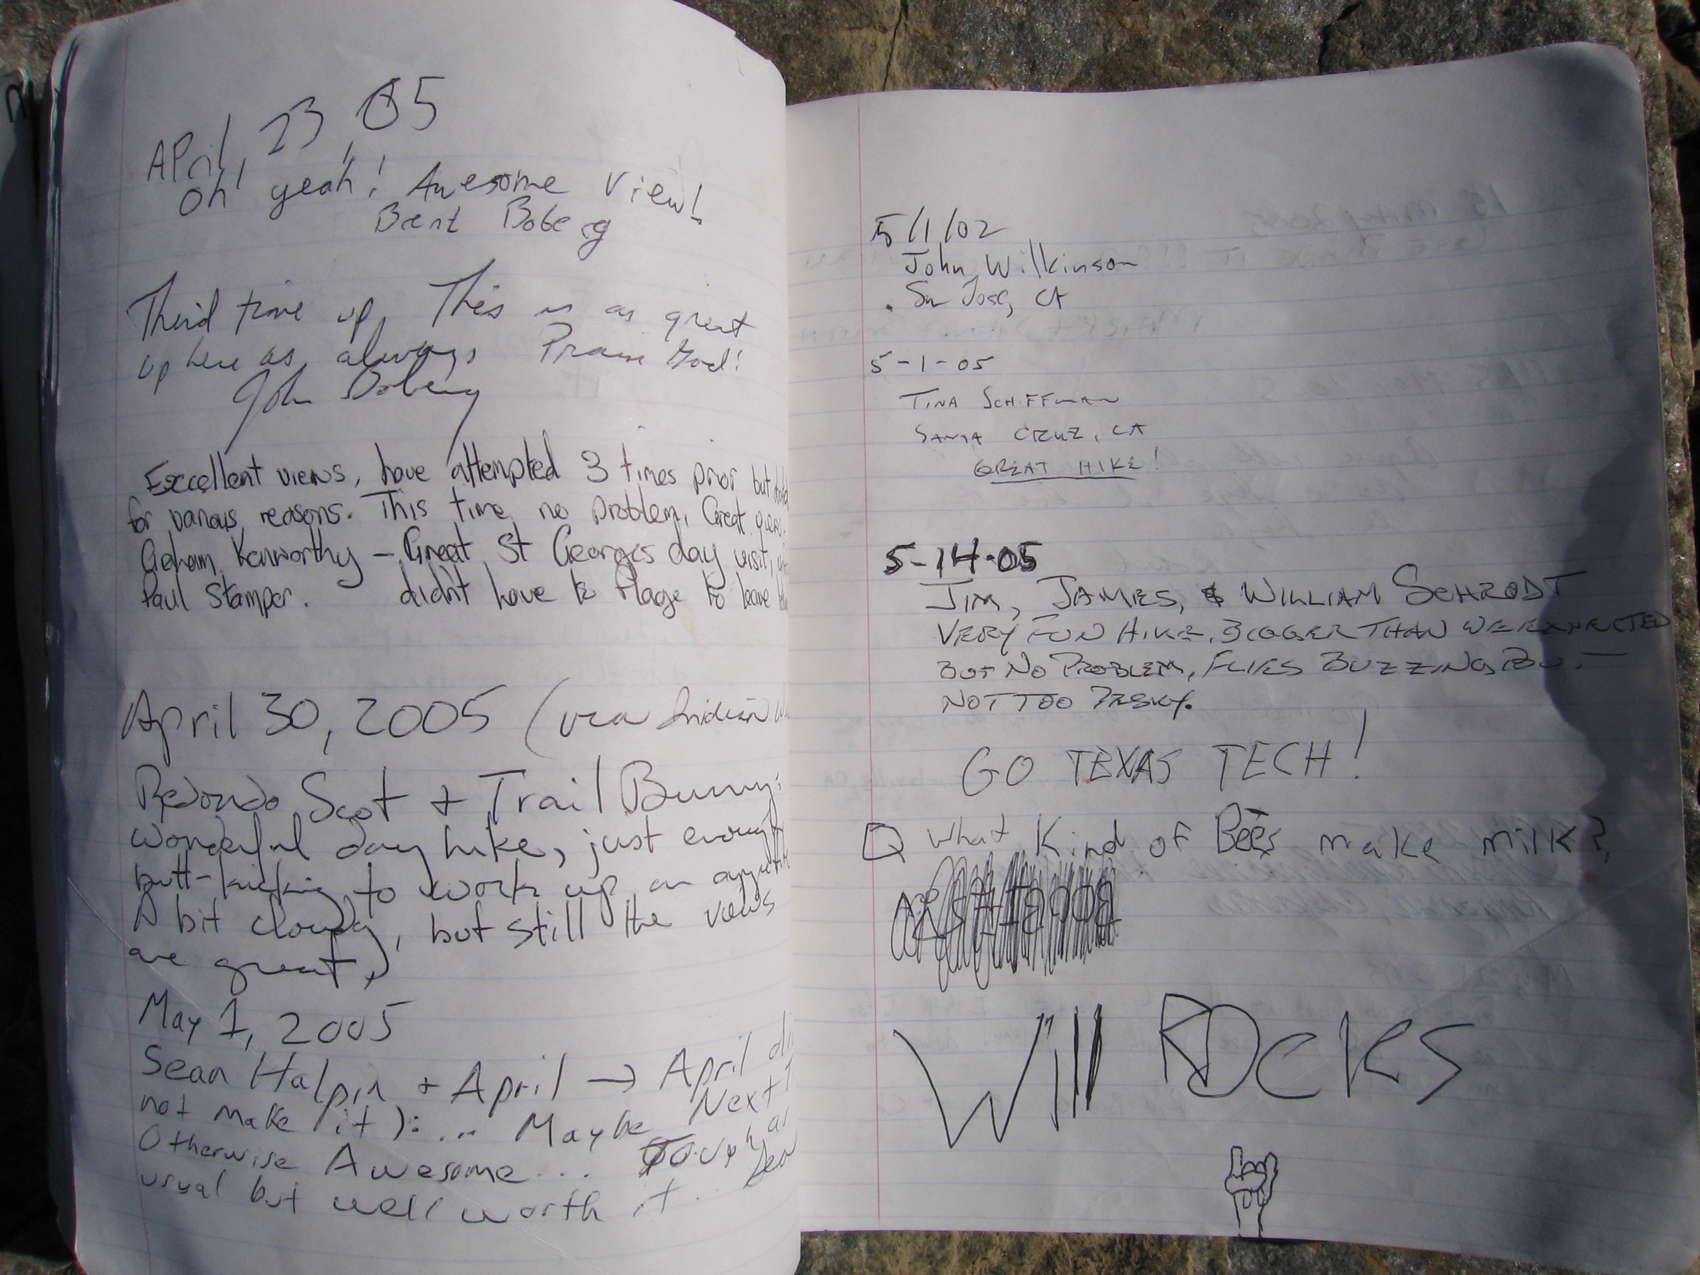 April, 23, 05
Oh! yeah! Awesome View!
Brent Boberg
Third time up. This is as great
up here as always Praise God!
John Boberg
Excellent views, have attempted 3 times prior but
for various reasons. This time no problem, Great
Graham Kenworthy - Great St Georges day visit,
Paul Stamper. didn't have to leave
April 30, 2005 (via Indian
Redondo Scot + Trail Bunny:
wonderful day hike, just enough
butt-kicking to work up an
A bit cloudy, but still the views
are great,
May 1, 2005
Sean Halpin + April → April
not make it ):... Maybe Next
Otherwise Awesome... Tough as
usual but well worth it..
5/1/02
John Wilkinson
San Jose, CA
5-1-05
TINA SCHIFFMAN
SANTA CRUZ, CA
GREAT HIKE!
5-14-05
JIM, JAMES, & WILLIAM SCHRODT
VERY FUN HIKE, BIGGER THAN WE EXPECTED
BUT NO PROBLEM, FLIES BUZZING BUT
NOT TOO PESKY.
GO TEXAS TECH!
Q What Kind of Bees make milk?
Will ROCKS